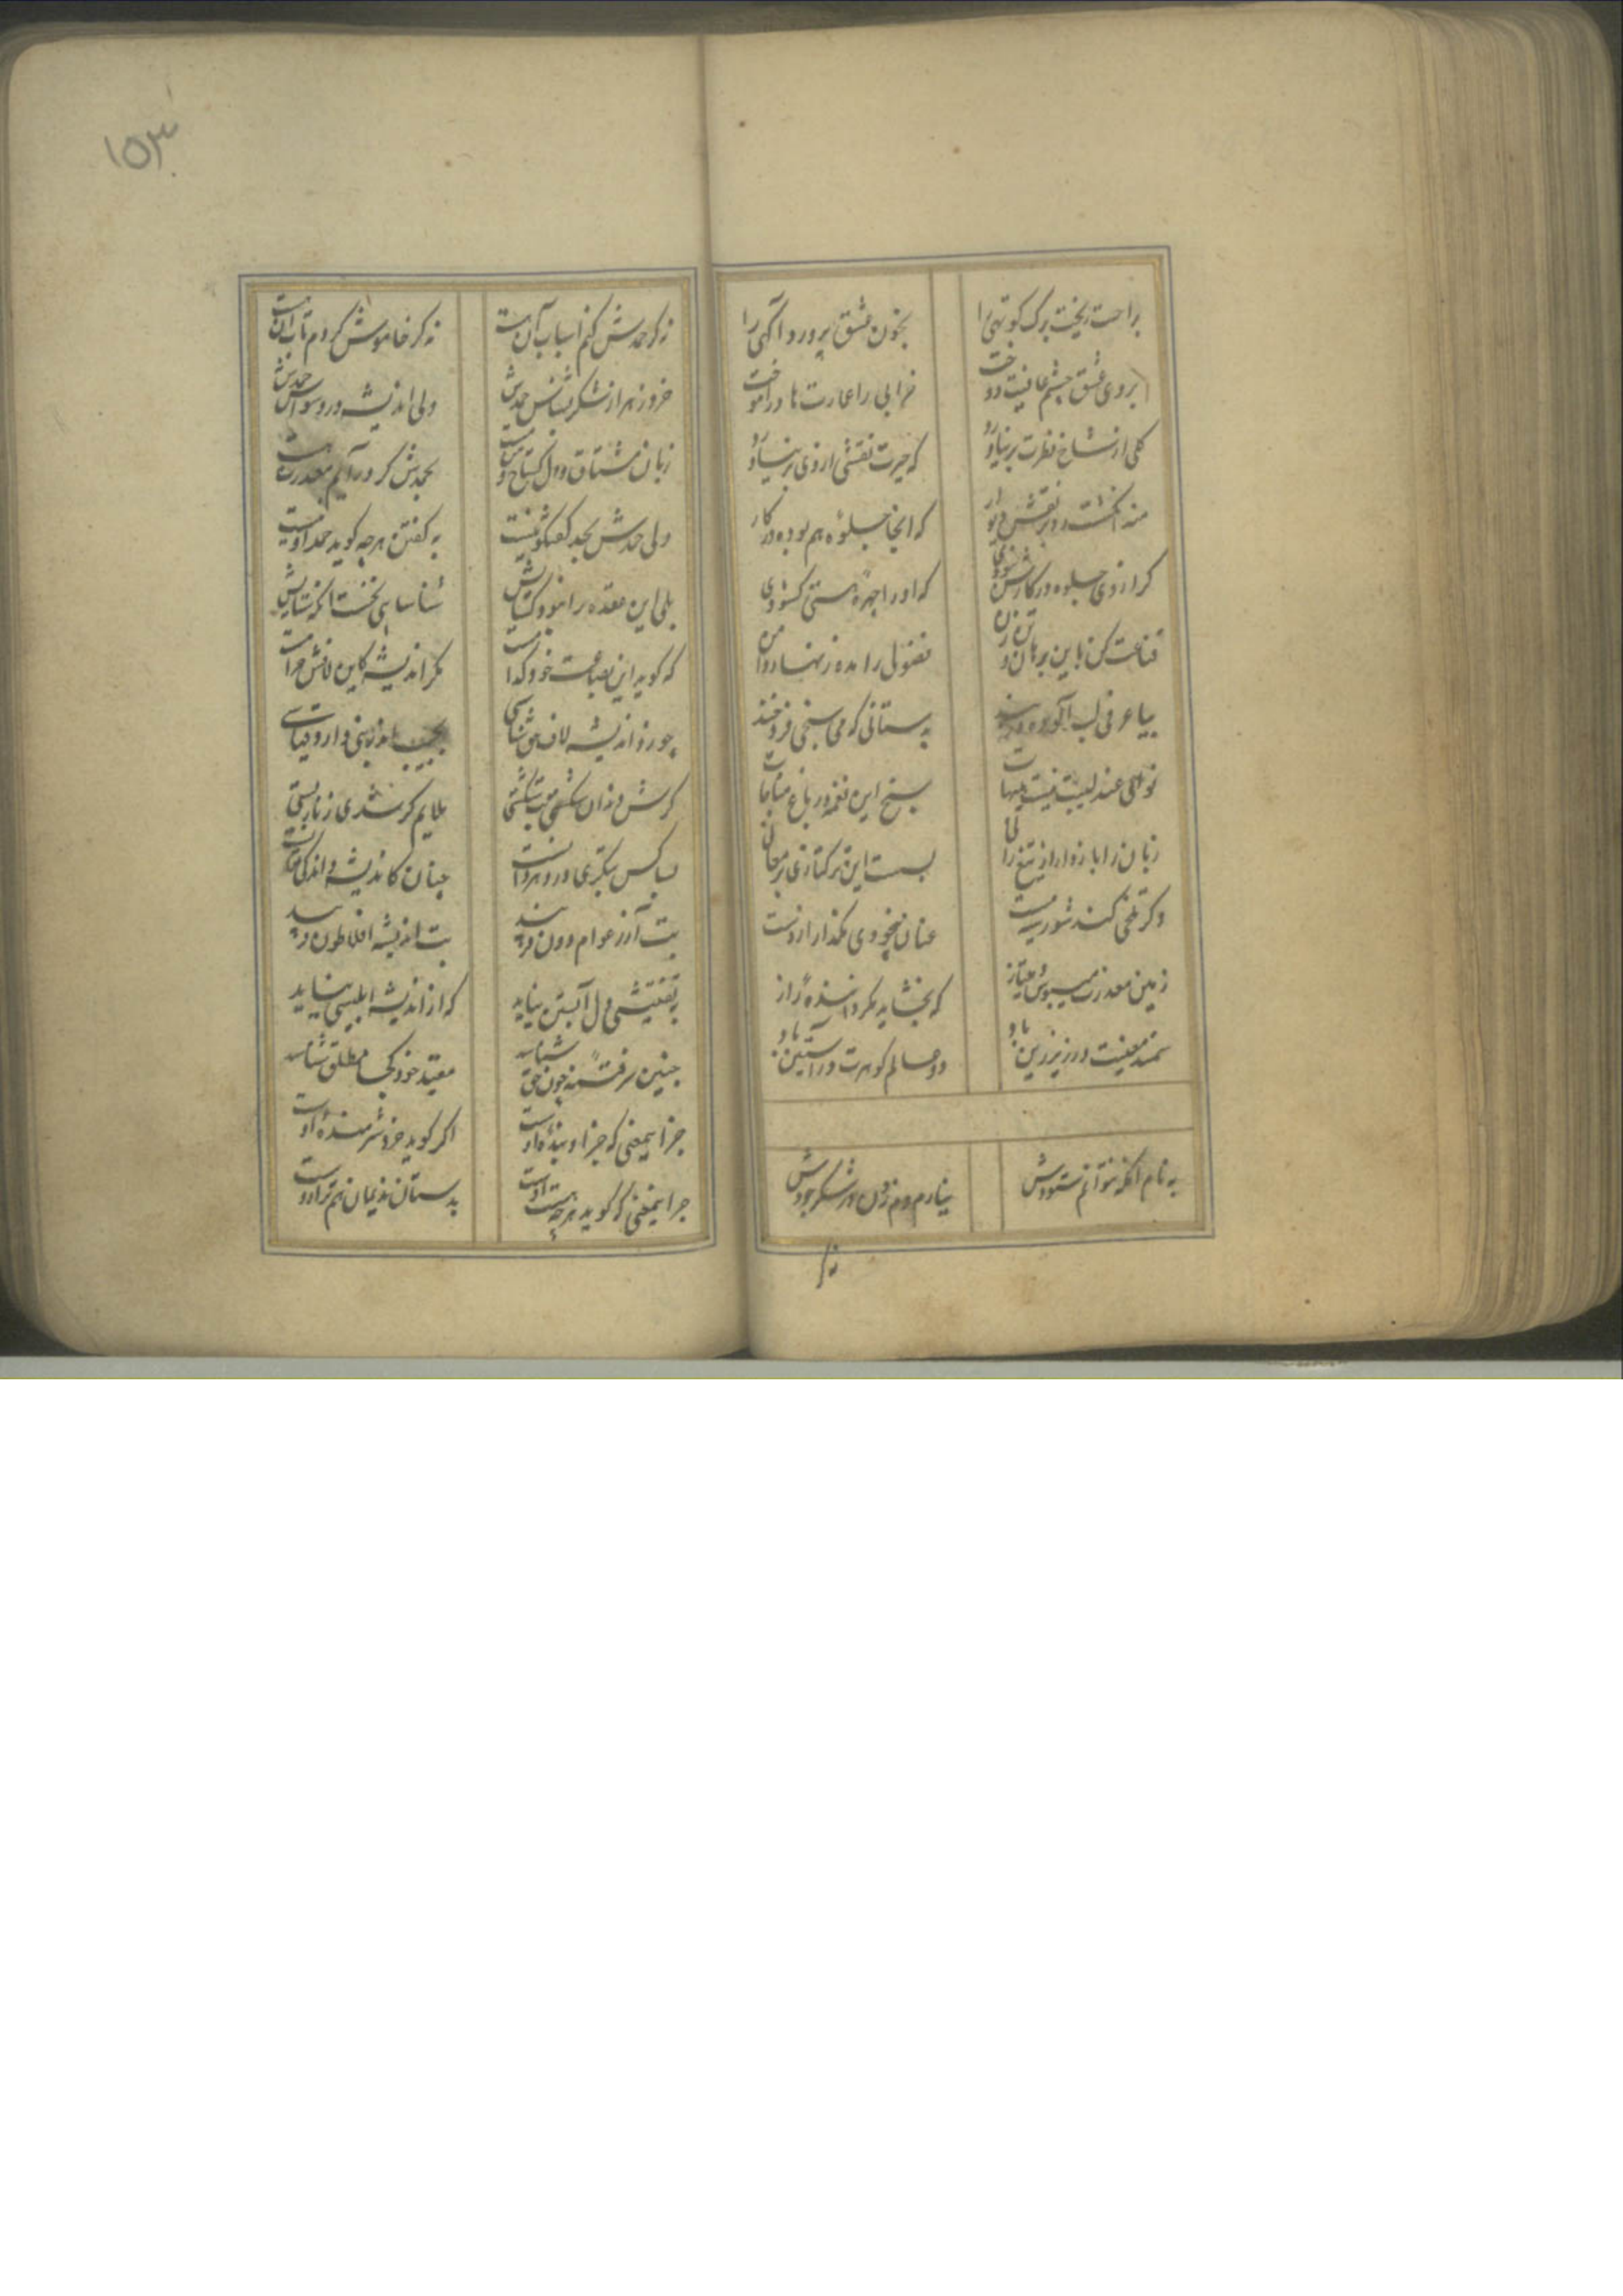 ۱۵۳
براحت ریخت برک کوتهی را
بخون عشق پرورد آگهی را
بروی عشق چشم عافیت دوخت
خرابی را عمارتها در آموخت
کلی از شاخ فطرت بر نیاورد
که حیرت نقشی از وی بر نیاورد
منه انکشت رد بر نقش دیوار
که اینجا جلوهٔ هم بوده در کار
کر از وی جلوه در کارش نبودی
که او را چهرهٔ هستی کشودی
قناعت کن باین برهان و تن زن
فضولی را مده زنهار دامن
بیا عرفی لب
به ستانی که می سنجی فروخند
نوای عندلیبت نیست هیهات
بسنج این نغمه در باغ مناجات
زبان را باز دار از تیغ رانی
بست این ترکتازی بر معانی
وکر تلخی کند شوریده مست
عنان بیخودی مکذار از دست
زمین معذرت میبوس و میتاز
که بخشاید مکر دانندهٔ راز
سمند معنیت در زیر زین باد
دو عالم کوهرت در آستین باد
به نام انکه نتوانم ستودش
نیارم دم زدن در شکر جودش
نه کر
نه کر حمدش کنم اسباب آن هست
نه کر خاموش کردم تاب آن هست
خرد زهر از شکر نشناس حمدش
ولی اندیشه در وسواس حمدش
زبان مشتاق و دل کستاخ و من مست
بحمدش کر در آیم معذرت هست
ولی حمدش بحد کفتکو نیست
به کفتن هرچه کوید حمد او نیست
بلی این عقده را نبود کشایش
شناسایی نخست انکه ستایش
که کوید این بضاعت خود کدامست
مکر اندیشه کاین دانش حرامست
چو رزد اندیشه لاف حق شناسی
بجیب
کرش وزان شکستی مت بشکستی
ملایم کر شدی زنار بستی
لباس بکتری در و هرو انست
چنان کاندیشه داند کی چنانست
بت آزر عوام دون فریبد
بت اندیشه افلاطون فریبد
به تفتیشی دل آبستن نیاید
که از اندیشه ابلیسی نزاید
چنین سر رفته چون حق شناسد
مقید خود کجا مطلق شناسد
جز این معنی که جز او بندهٔ اوست
اکر کوید خرد شرمندهٔ اوست
جز این معنی که کوید هرچه هست اوست
بدستان ندیمان هم ترازوست